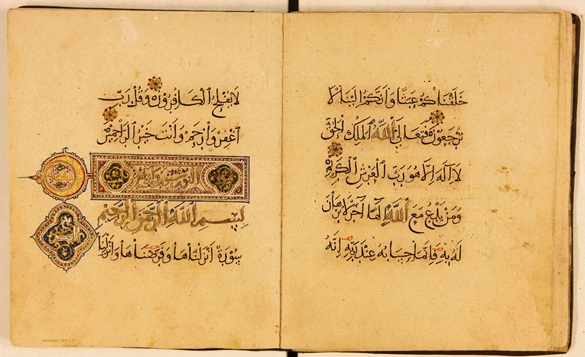 خَلَقْنَاكُمْ عَبَثًا وَأَنَّكُمْ إِلَيْنَا لَا
تُرْجَعُونَ فَتَعَالَى اللَّهُ الْمَلِكُ الْحَقُّ
لَا إِلَهَ إِلَّا هُوَ رَبُّ الْعَرْشِ الْكَرِيمِ
وَمَنْ يَدْعُ مَعَ اللَّهِ إِلَهًا آخَرَ لَا بُرْهَانَ
لَهُ بِهِ فَإِنَّمَا حِسَابُهُ عِنْدَ رَبِّهِ إِنَّهُ
لَا يُفْلِحُ الْكَافِرُونَ وَقُلْ رَبِّ
اغْفِرْ وَارْحَمْ وَأَنْتَ خَيْرُ الرَّاحِمِينَ
بِسْمِ اللَّهِ الرَّحْمَنِ الرَّحِيمِ
سُورَةٌ أَنْزَلْنَاهَا وَفَرَضْنَاهَا وَأَنْزَلْنَا